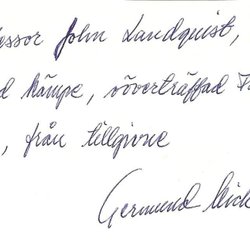 essor John Landquist,
d kämpe, oöverträffad
, från tillgivne
Germund Mich